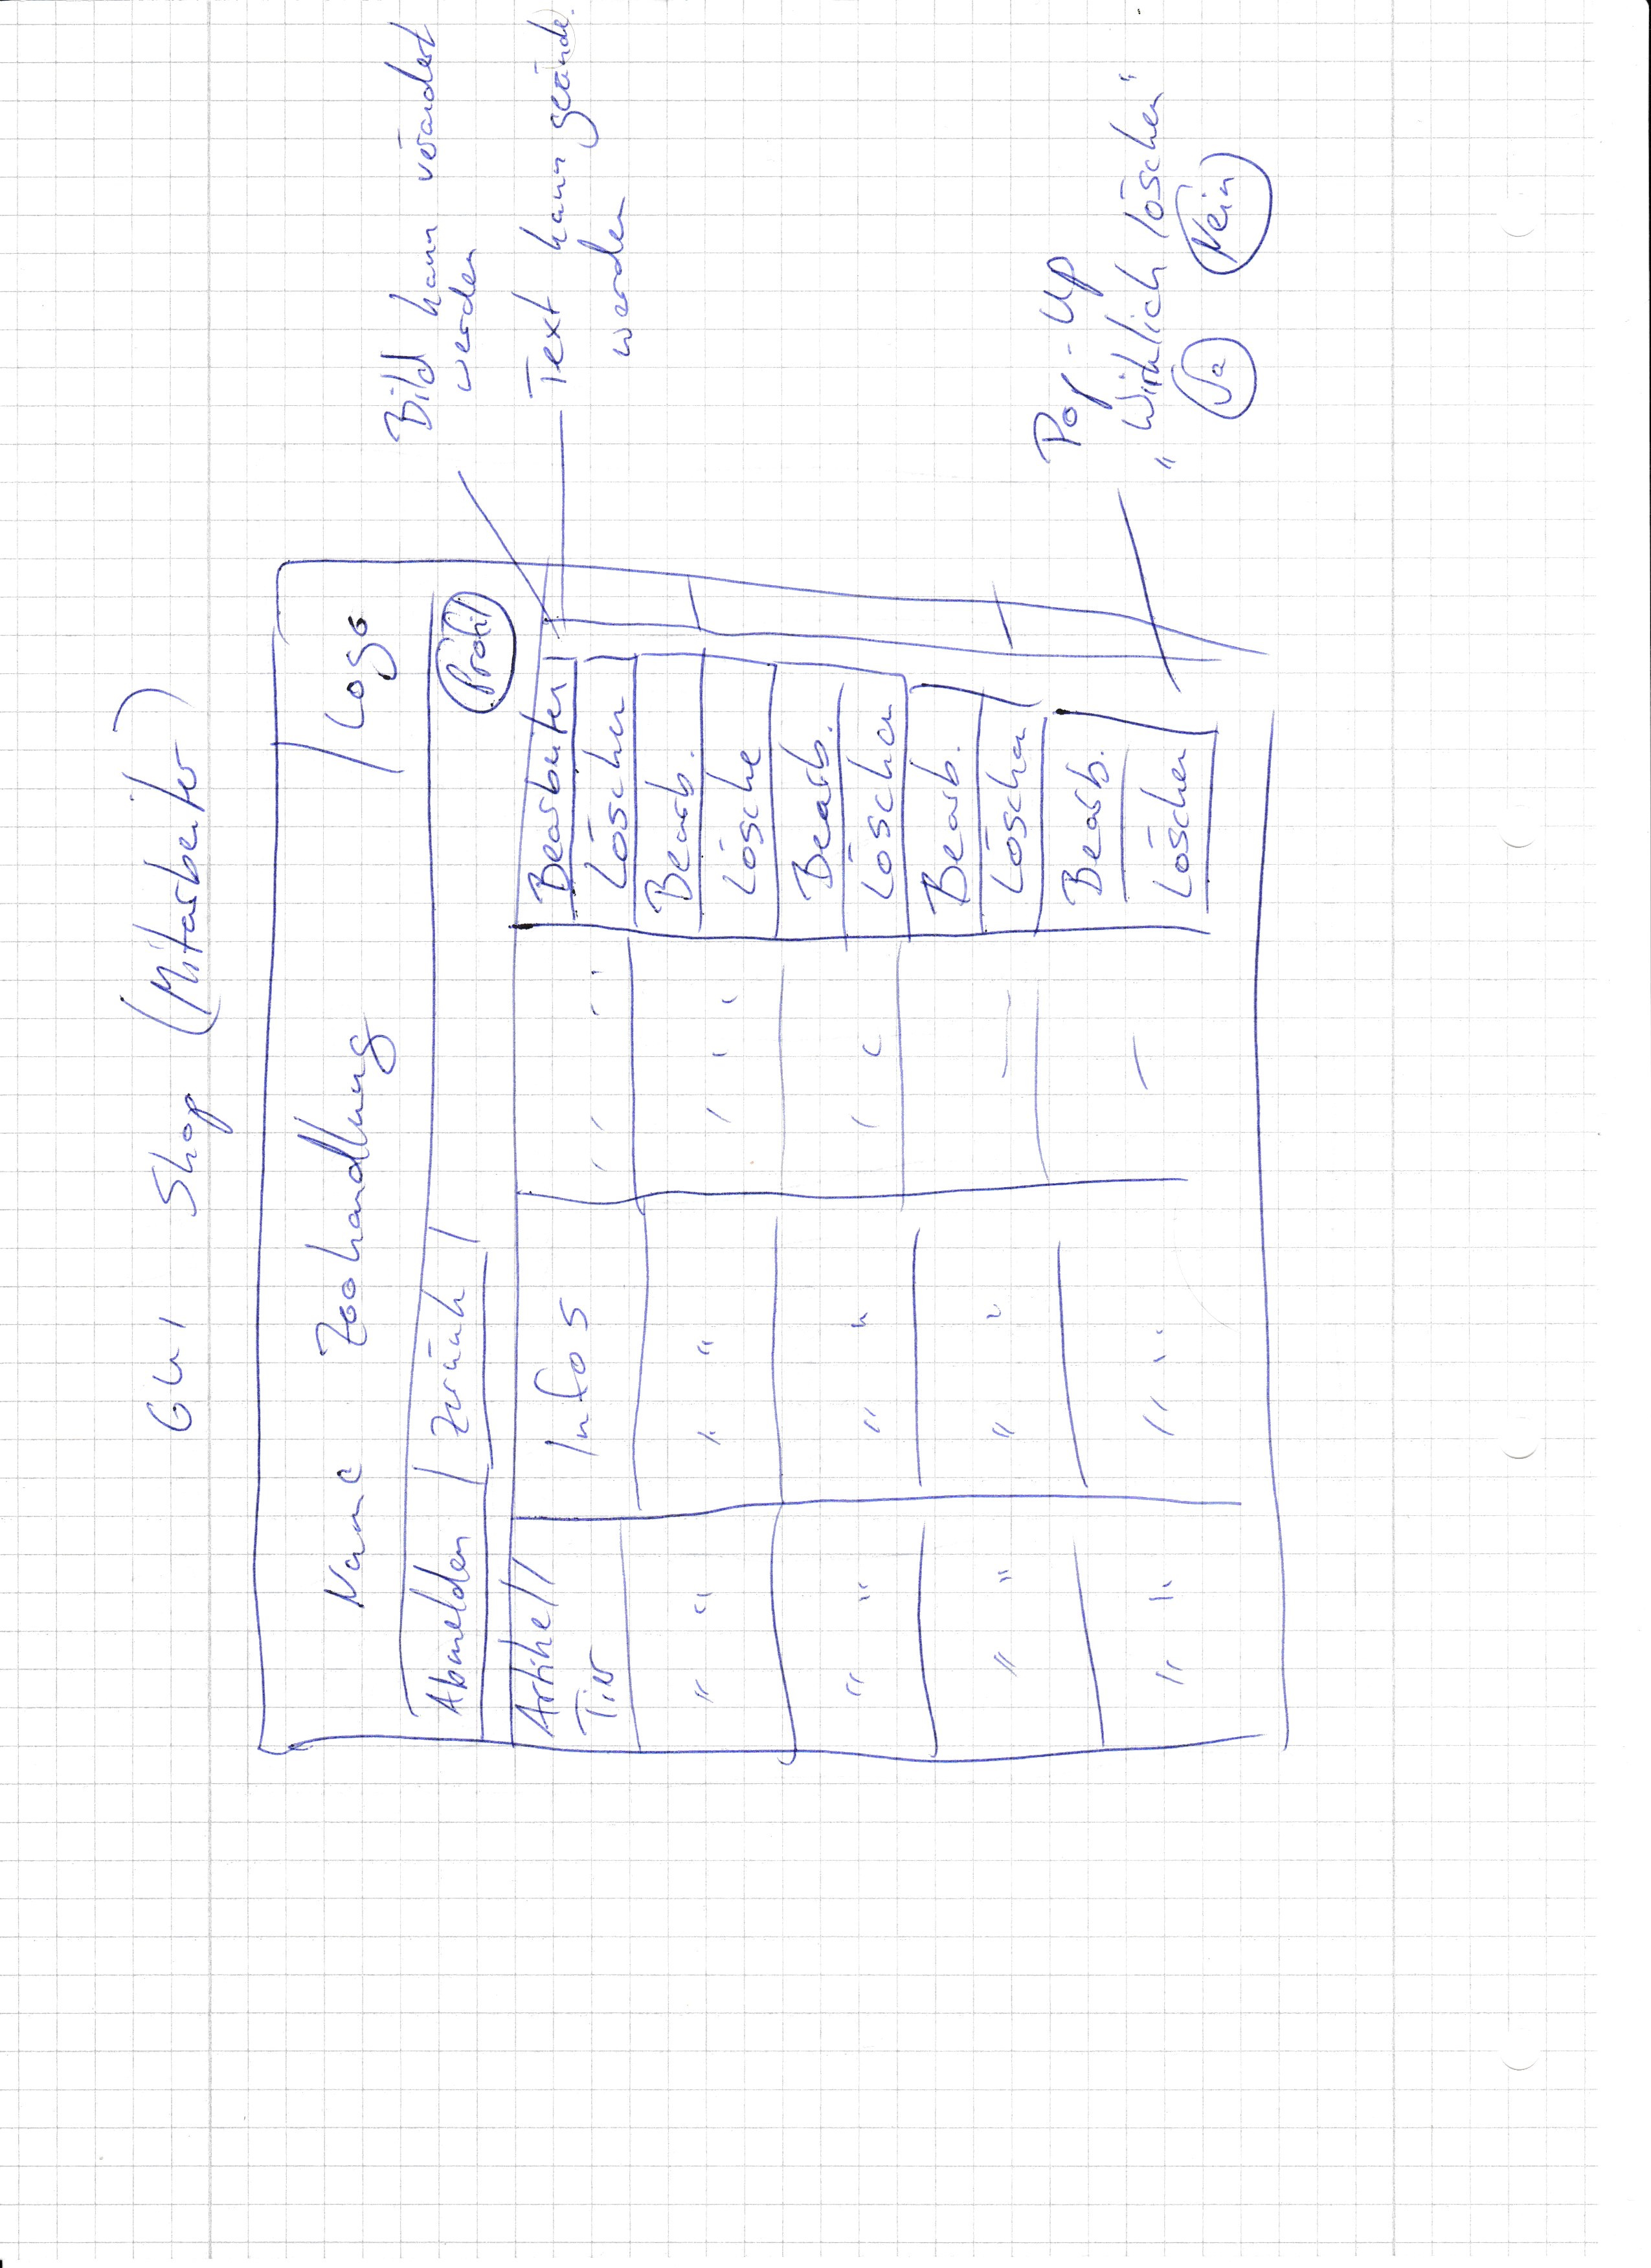 GUI Shop (Mitarbeiter)
Name Zoohandlung | Logo
Abmelden | Zurück |
Profil
Artikel/
Tier
Infos
" "
Bearbeiten
Löschen
" "
" "
" "
Bearb.
Lösche
" "
" "
" "
Bearb.
Löschen
" "
" "
—
Bearb.
Löschen
" "
" "
—
Bearb.
Löschen
Bild kann verändert
werden
Text kann geände.
werden
Pop-Up
"Wirklich löschen"
Ja Nein